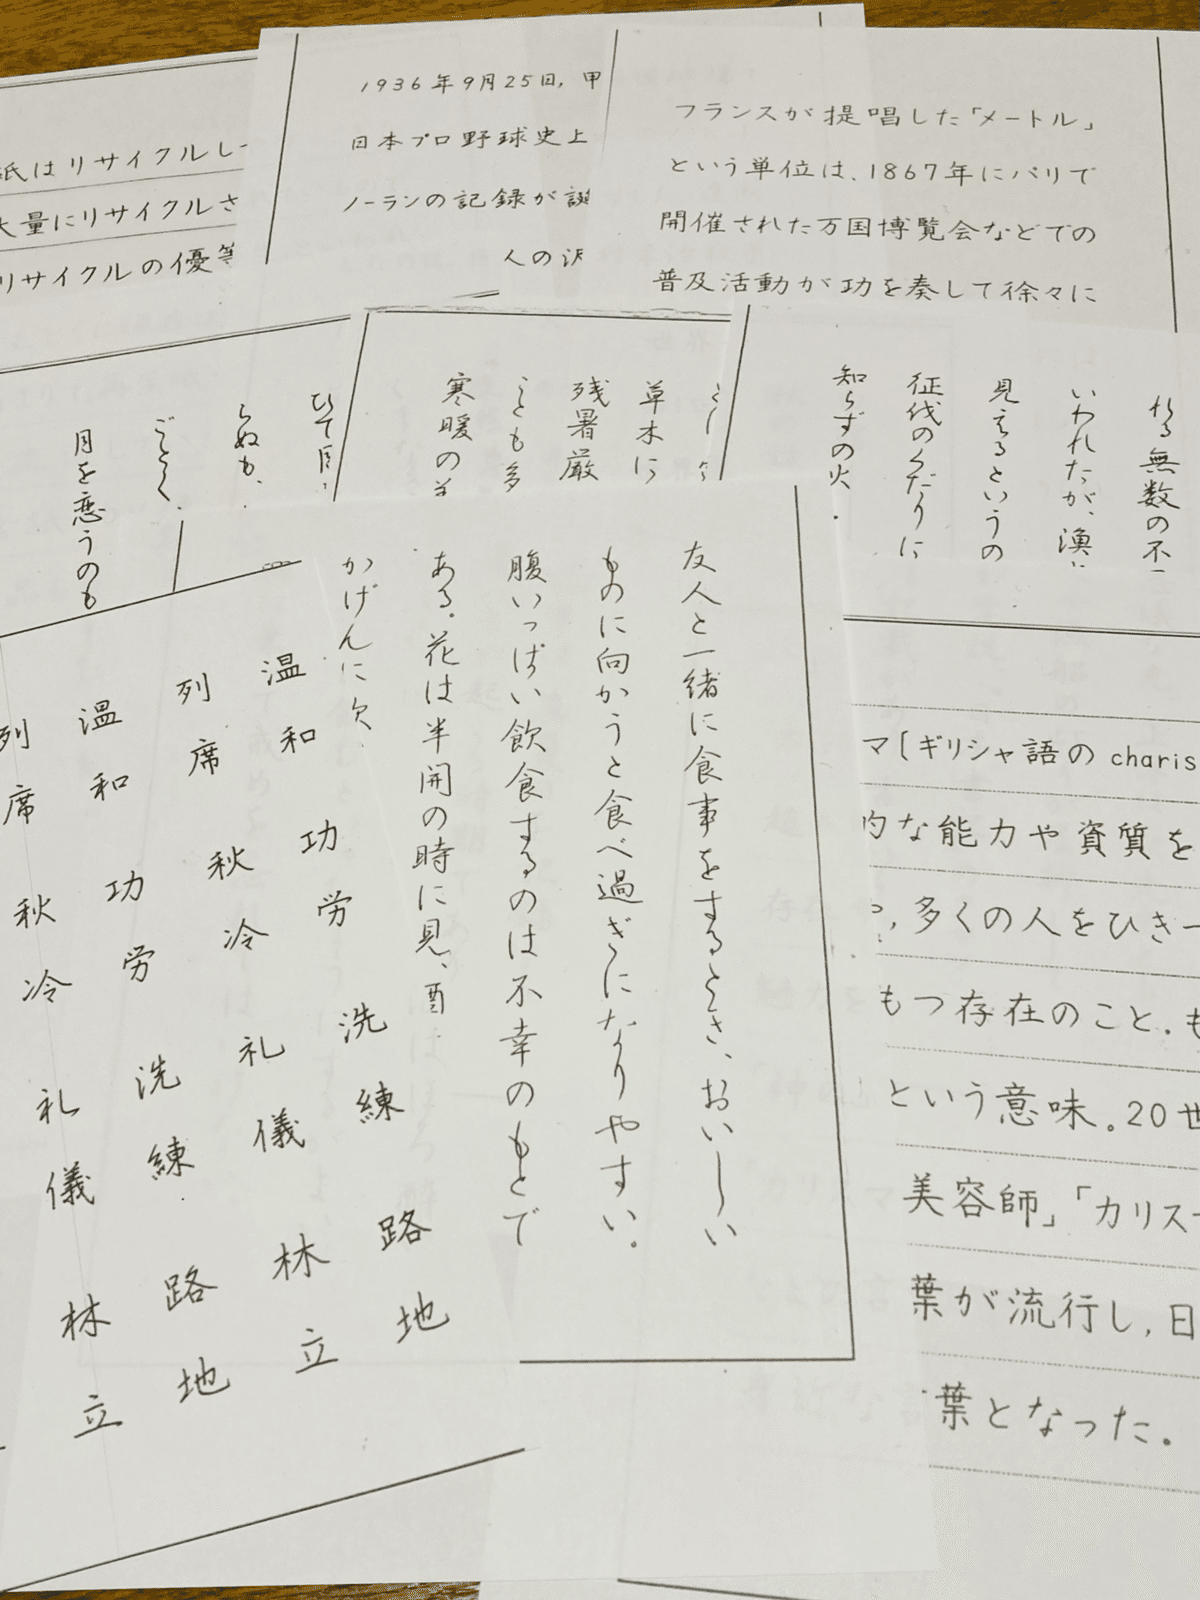 紙はリサイクルし
大量にリサイクルさ
リサイクルの優等
1936年9月25日,甲
日本プロ野球史上
ノーランの記録が誕
人の沢
フランスが提唱した「メートル」
という単位は、1867年にパリで
開催された万国博覧会などでの
普及活動が功を奏して徐々に
らぬも、
ごとく、
月を恋うのも
草木に
残暑厳
ことも多
寒暖の
れる無数の不
いわれたが、漁
見えるというの
征伐のくだりに
知らずの火
友人と一緒に食事をするとき、おいしい
ものに向かうと食べ過ぎになりやすい。
腹いっぱい飲食するのは不幸のもとで
ある。花は半開の時に見、酉
かげんに欠
温和 功労 洗練 路地
列席 秋冷 礼儀 林立
温和 功労 洗練 路地
列席 秋冷 礼儀 林立
マ〔ギリシャ語のcharis
的な能力や資質を
,多くの人をひき
もつ存在のこと.も
という意味。20世
美容師」「カリス
葉が流行し,日
葉となった。